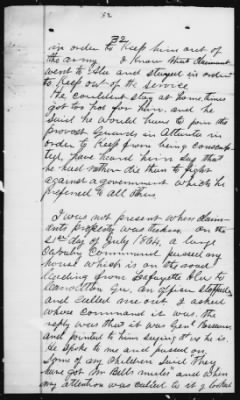 52
B2
in order to keep him out of
the army. I know that Claimant
went to Isle and stayed in order
to keep out of the service
He could not stay at home, times
got too hot for him, and he
said he would have to join the
provost Guards in Atlanta in
order to keep from being conscrip
ted, have heard him say that
he had rather die than to fight
against a government which he
prefered to all others.
I was not present when claim-
ants property was taken. on the
21st day of July 1864, a large
Cavalry Command passed my
house which is on the road
leading from Lafayette Ala to
Carrollton Ga, an officer stopped
and called me out I asked
whose command it was, the
reply was that it was Genl
and pointed to him saying there he is.
He spoke to me and passed on.
Some of my children said they
have got Mr Bells mules and when
my attention was called to it I looked